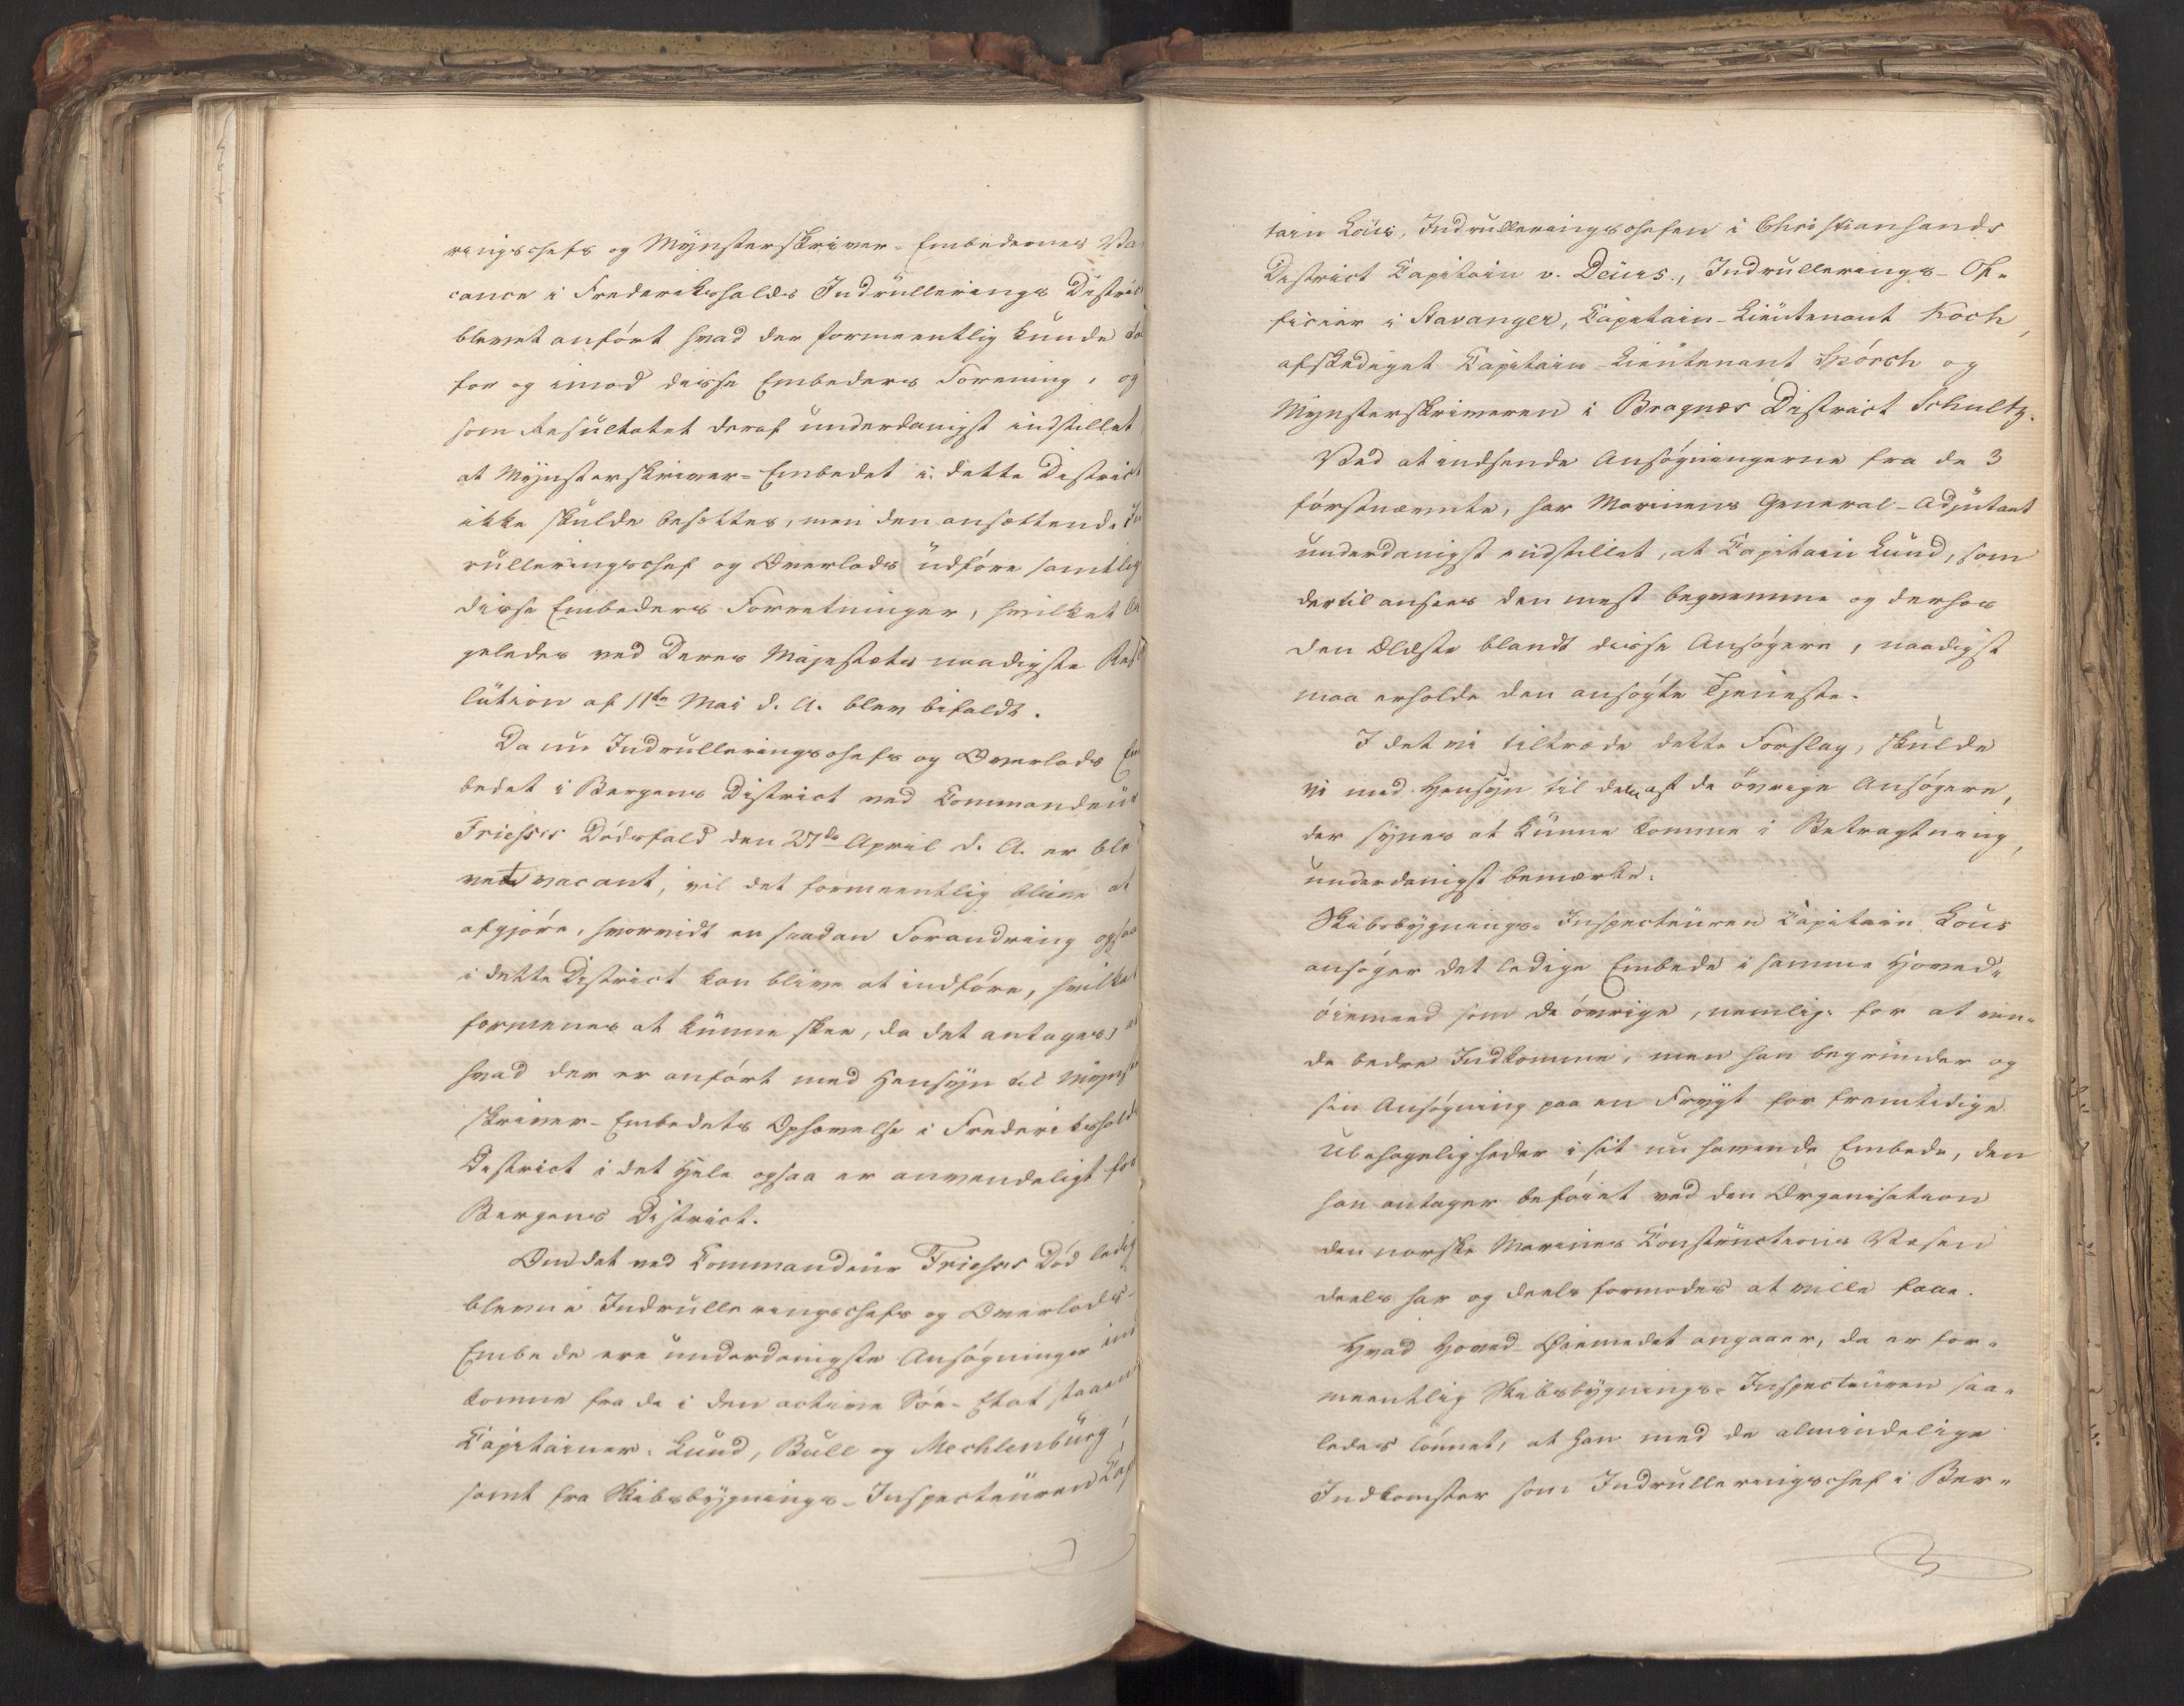 ringschefs og Mynsterskriver-Embedernes Va-
cance i Frederikshalds Indrullerings District
blevet anført hvad der formeentlig kunde
for og imod disse Embeders Forening, og
som Resultatet deraf underdanigst indstillet,
at Mynsterskriver-Embedet i dette District
ikke skulde besættes, men den ansættende In
rulleringschef og Overlods udføre samtlig
disse Embeders Forretninger, hvilket
geledes ved Deres Majestæts naadigste Reso
lution af 11te Mai d. A. blev bifaldt.
Da nu Indrulleringschefs og Overlods Em
bedet i Bergens District ved Commandeur
Friessis Dødsfald den 27de April d. A. er ble
vet vacant, vil det formeentlig blive at
afgjøre, hvorvidt en saadan Forandring ogsaa
i dette District kan blive at indføre, hvilket
formenes at kunne skee, da det antages, at
hvad der er anført med Hensyn til Mynst
skriver-Embedets Ophævelse i Frederikshalds
District i det Hele ogsaa er anvendeligt for
Bergens District.
Om det ved Commandeur Friessis Død ledig
blevne Indrulleringschefs og Overlods-
Embede ere underdanigste Ansøgninger ind
komne fra de i den active Søe-Etat staaende
Capitainer: Lund, Bull og Mechlenburg,
samt fra Skibsbygnings-Inspecteuren Cap
tain Lous, Indrulleringschefen i Christiansands
District Capitain v. Deurs., Indrullerings-Of-
ficier i Stavanger, Capitain-Lieutenant Koch,
afskediget Capitain-Lieutenant Spörch og
Mynsterskriveren i Bragnæs District Schultz.
Ved at indsende Ansøgningerne fra de 3
førstnævnte, har Marinens General-Adjutant
underdanigst indstillet, at Capitain Lund, som
dertil ansees den mest beqvemme og derhos
den Ældste blandt disse Ansøgere, naadigst
maa erholde den ansøgte Tjeneste.
I det vi tiltræde dette Forslag, skulde
vi med Hensyn til dem af de øvrige Ansøgere,
der synes at kunne komme i Betragtning,
underdanigst bemærke:
Skibsbygnings-Inspecteuren Capitain Lous
ansøger det ledige Embede i samme Hoved-
øiemeed som de øvrige, nemlig: for at vin-
de bedre Indkomme, men han begrunder og
sin Ansøgning paa en Frygt for fremtidige
Ubehageligheder i sit nu havende Embede, den
han antager beføiet ved den Organisation
den norske Marines Constructions Vesen
deels har og deels formodes at ville faae.
Hvad Hoved-Øiemedet angaaer, da er for-
meentlig Skibsbygnings-Inspecteuren saa-
ledes lønnet, at han med de almindelige
Indkomster som Indrulleringschef i Ber-